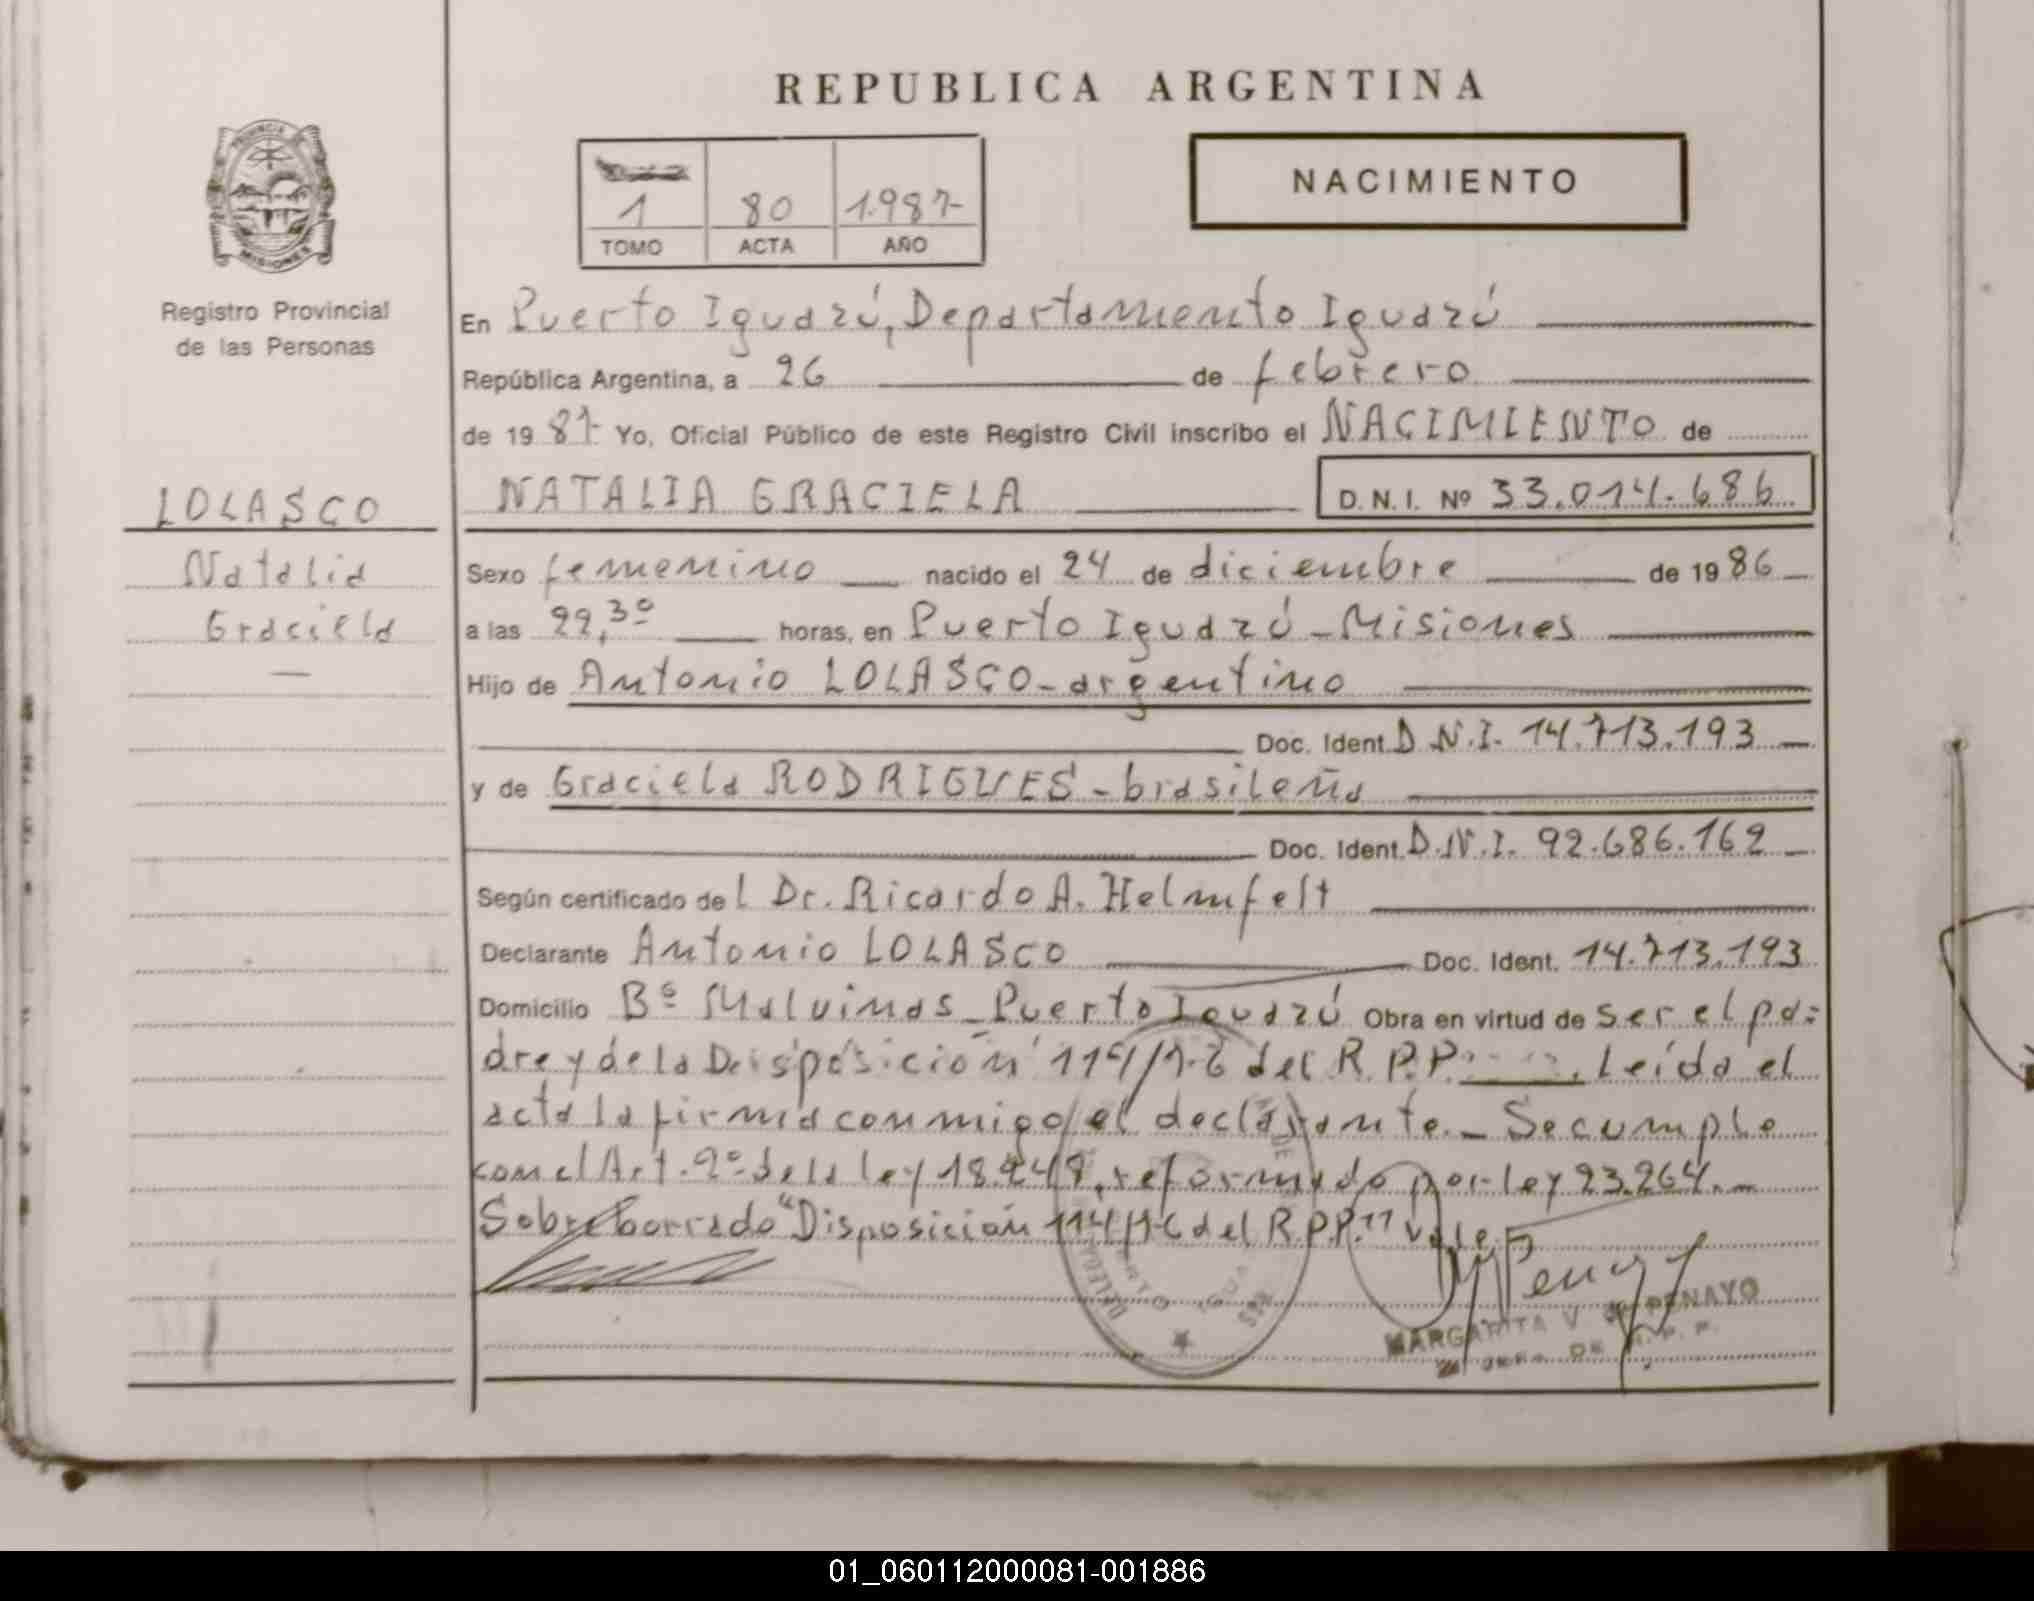 REPUBLICA ARGENTINA
PROVINCIA DE
MISIONES
Registro Provincial
de las Personas
1 80 1.987-
TOMO ACTA AÑO
NACIMIENTO
En Puerto Iguazú, Departamento Iguazú
República Argentina, a 26 de febrero
de 1987- Yo, Oficial Público de este Registro Civil inscribo el NACIMIENTO de
NATALIA GRACIELA D.N.I. Nº 33.014.686
LOLASCO
Natalia
Graciela
Sexo femenino nacido el 24 de diciembre de 1986
a las 22,30 horas, en Puerto Iguazú - Misiones
Hijo de Antonio LOLASCO - argentino
Doc. Ident. D.N.I. 14.713.193
y de Graciela RODRIGUES - brasileña
Doc. Ident. D.N.I. 92.686.162
Según certificado del Dr. Ricardo A. Helmfelt
Declarante Antonio LOLASCO Doc. Ident. 14.713.193
Domicilio Bº Malvinas - Puerto Iguazú Obra en virtud de ser el pa=
dre y de la Disposición 114/ del R.P.P. Leída el
acta la firma conmigo el declarante. - Se cumple
con el Art. 2º de la ley 18.248, reformado por ley 23.264. -
Sobre borrado "Disposición 114/ del R.P.P." vale
MARGARITA V PENAYO
01_060112000081-001886